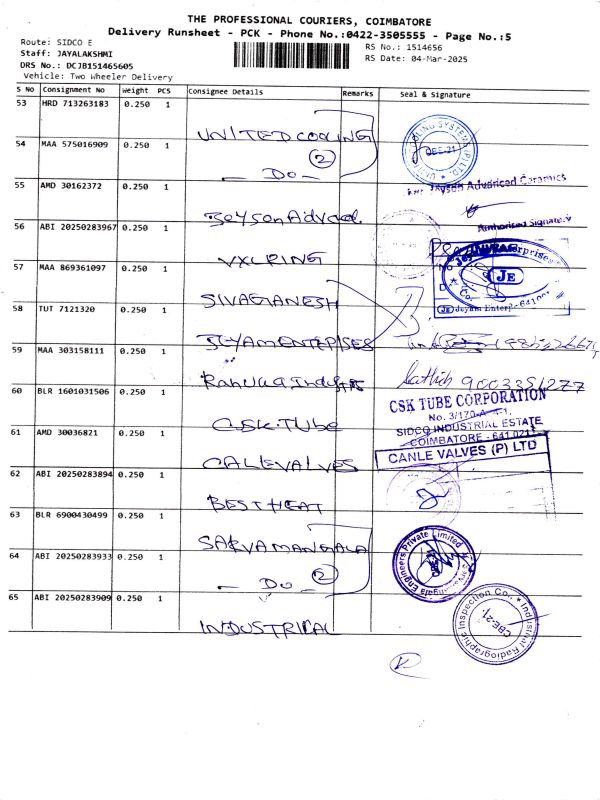 THE PROFESSIONAL COURIERS, COIMBATORE
Delivery Runsheet - PCK - Phone No.:0422-3505555 - Page No.:5
Route: SIDCO E
RS No.: 1514656
Staff: JAYALAKSHMI
RS Date: 04-Mar-2025
DRS No.: DCJB151465605
Vehicle: Two Wheeler Delivery
S No Consignment No Weight PCS Consignee Details Remarks Seal & Signature
53 HRD 713263183 0.250 1 UNITED COOLING
54 MAA 575016909 0.250 1 — Do — 2
CBE-21
55 AMD 30162372 0.250 1 Jeyson Advcd.
For Jeyson Advanced Ceramics
Authorised Signatory
56 ABI 20250283967 0.250 1 VXL RING
57 MAA 869361097 0.250 1 SIVAGANESH
JE
Jeyam Enterprises
58 TUT 7121320 0.250 1 JEYAM ENTERPISES
59 MAA 303158111 0.250 1
Sathish 9003351277
60 BLR 1601031506 0.250 1 C.S.K. TUBE
CSK TUBE CORPORATION
No. 3/170-A-4-1,
SIDCO INDUSTRIAL ESTATE
COIMBATORE - 641 021
61 AMD 30036821 0.250 1 CALE VALVES
CANLE VALVES (P) LTD
62 ABI 20250283894 0.250 1 BEST HEAT
63 BLR 6900430499 0.250 1 SARVAMANGALA
64 ABI 20250283933 0.250 1 — Do — 2
Sarvamangala Engineers Private Limited
65 ABI 20250283909 0.250 1 INDUSTRIAL
Industrial Radiographic Inspection Co.
CBE-21